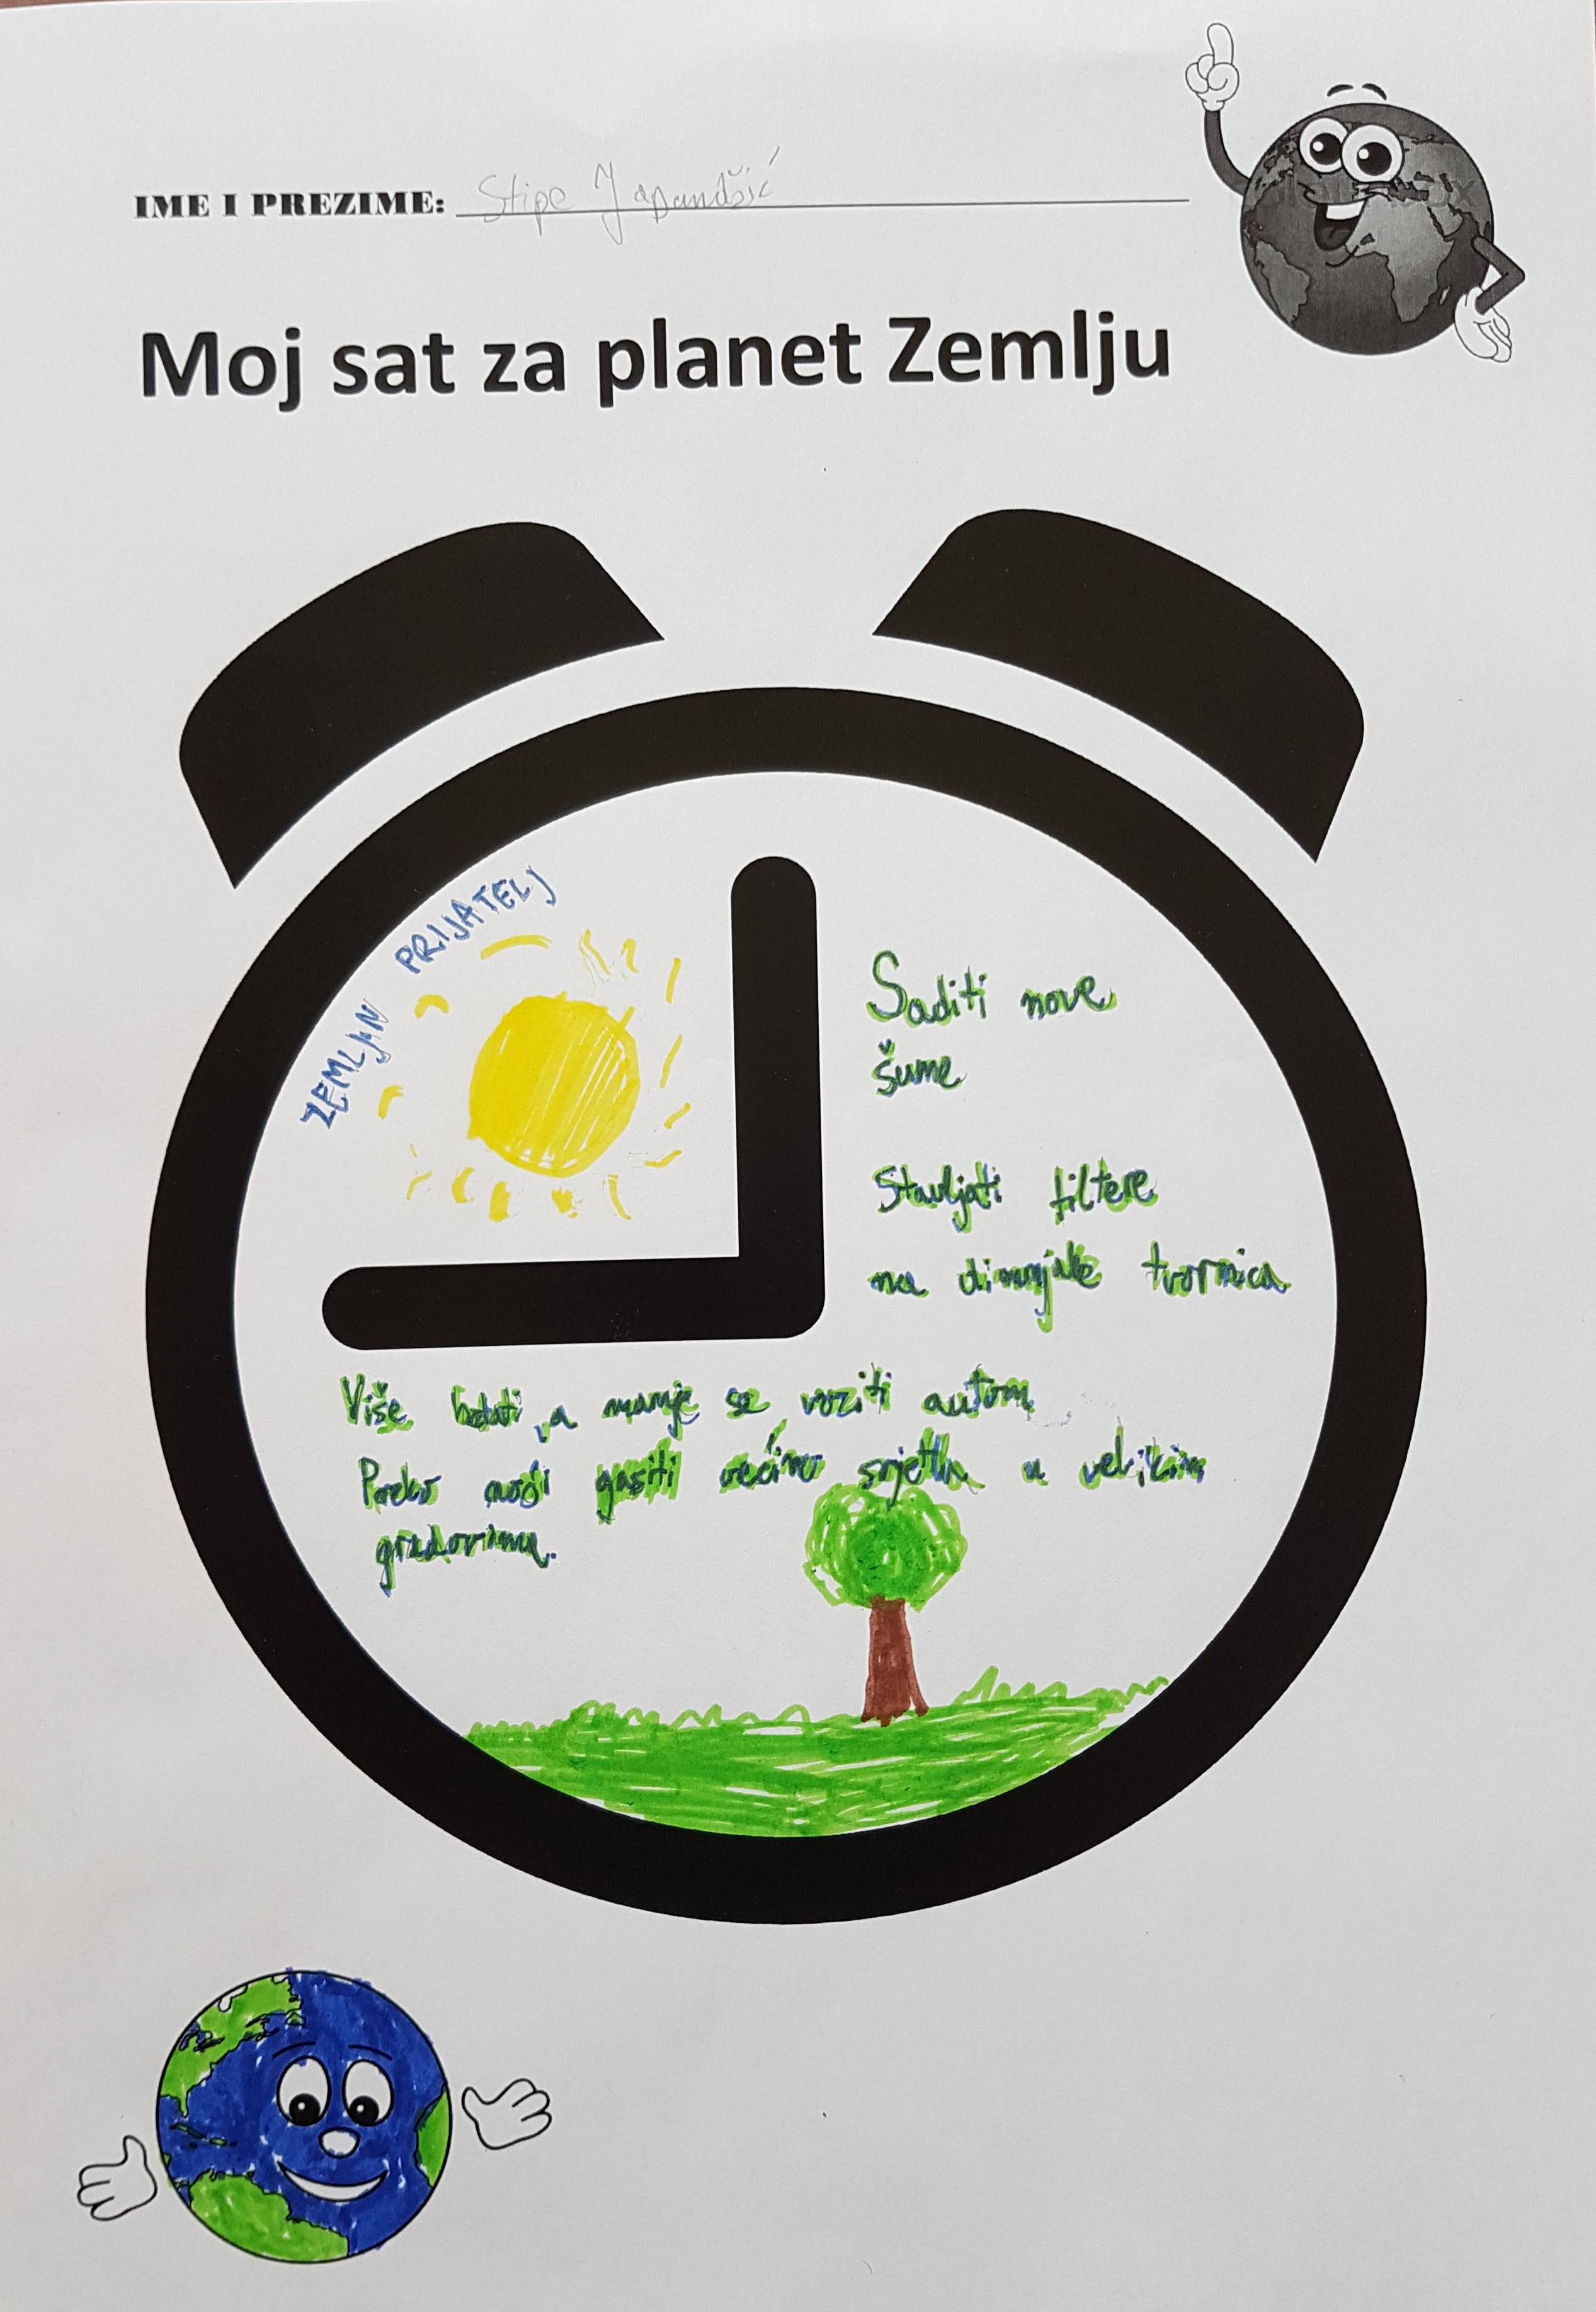 IME I PREZIME: Stipe Japandžić
Moj sat za planet Zemlju
ZEMLJIN PRIJATELJ
Saditi nove
šume
Stavljati filtere
na dimnjake tvornica
Više hodati, a manje se voziti autom
Preko noći gasiti većinu svjetla u velikim
gradovima.